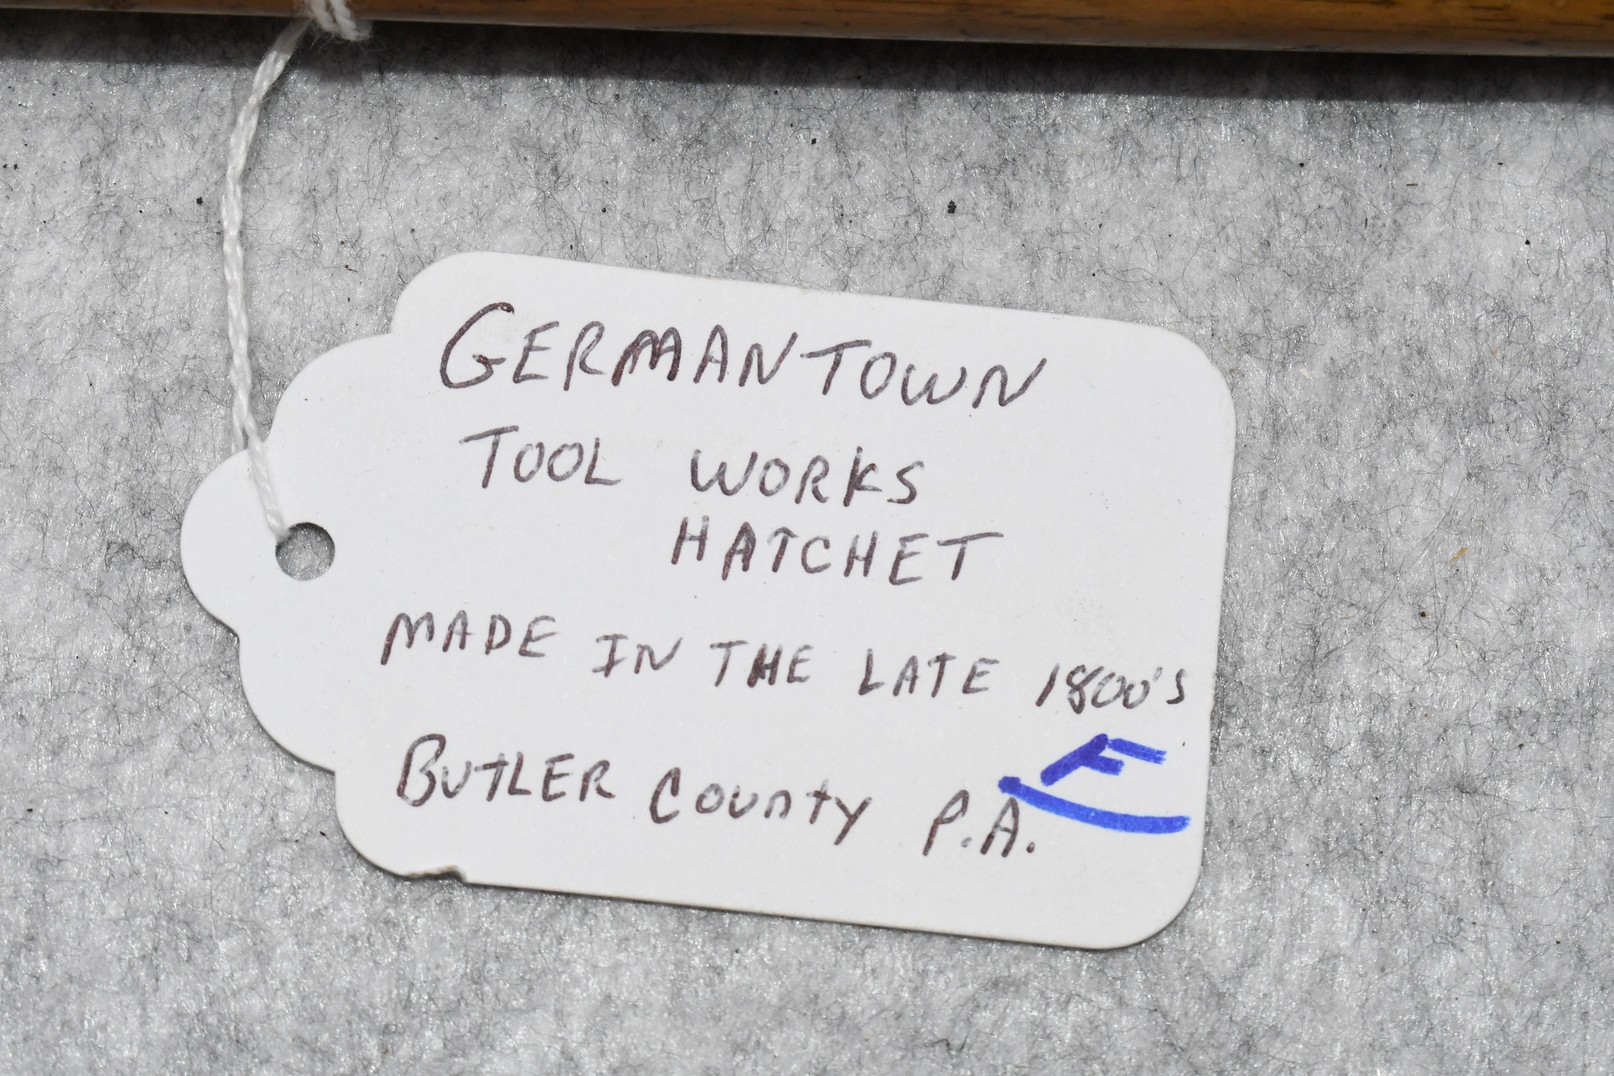 GERMANTOWN
TOOL WORKS
HATCHET
MADE IN THE LATE 1800's
F
BUTLER COUNTY P.A.